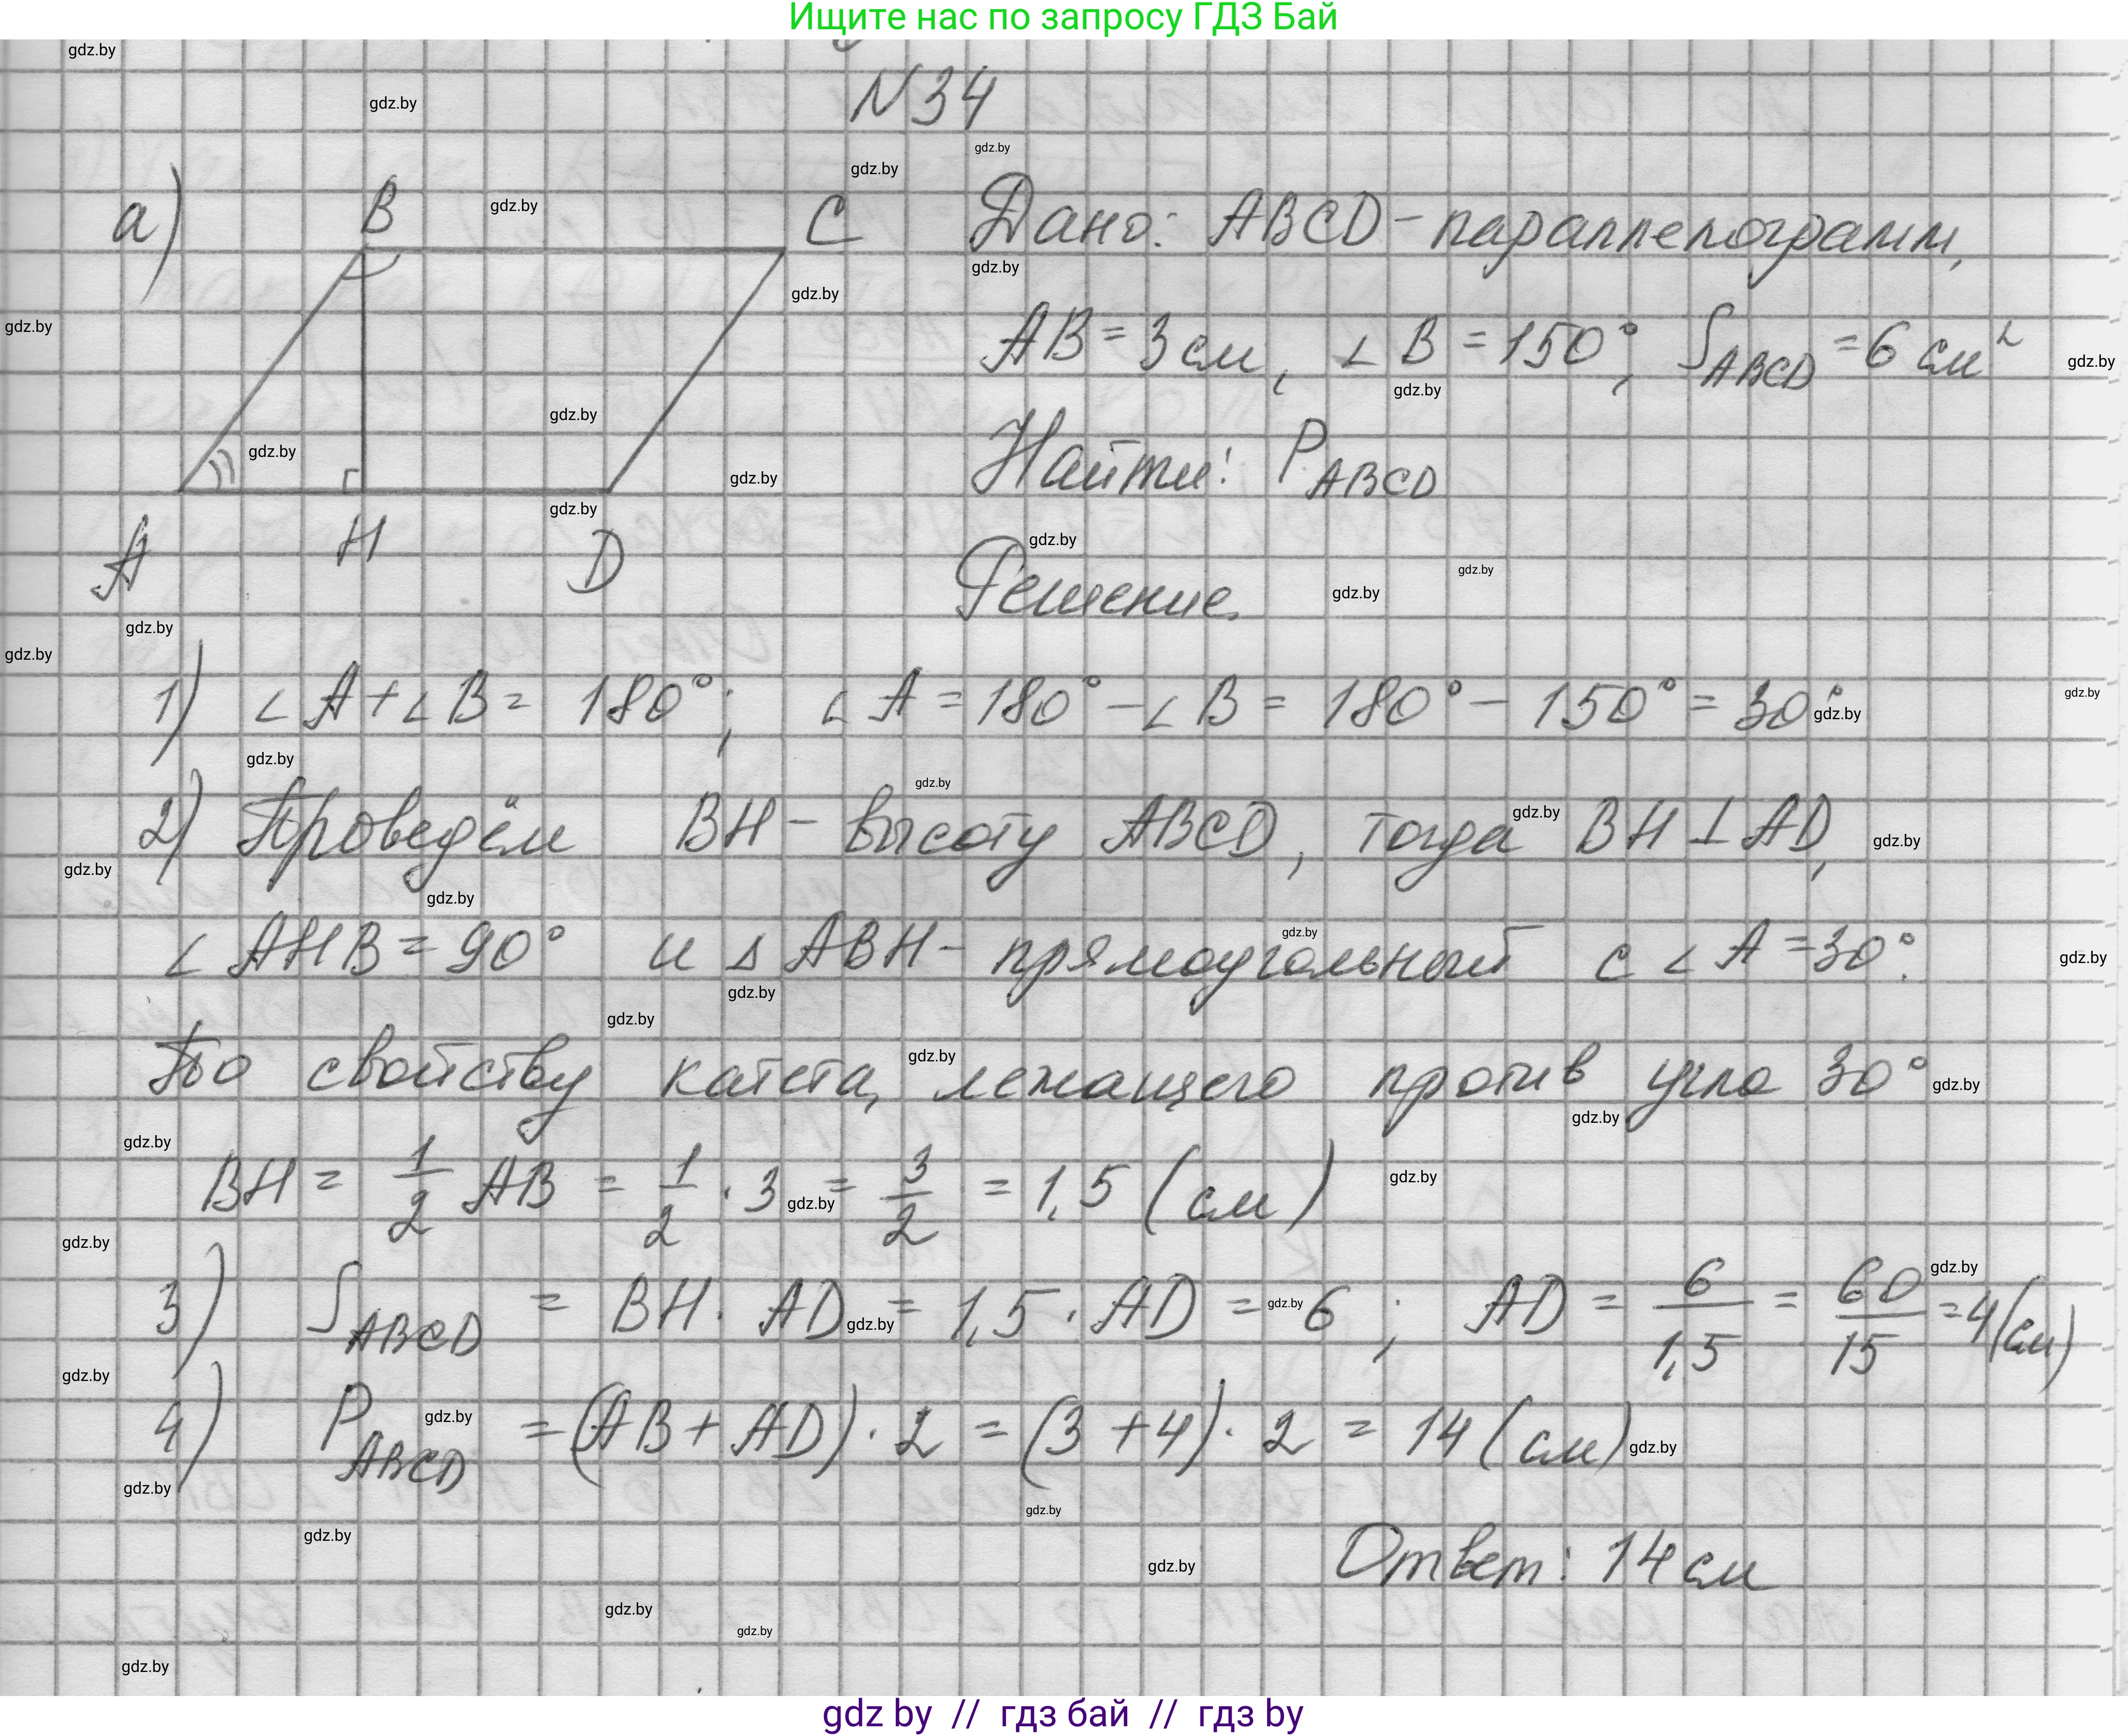 Ищите нас по запросу ГДЗ Бай
N34
а) B C Дано: ABCD - параллелограмм,
AB = 3 см, ∠B = 150°, S ABCD = 6 см²
Найти: P ABCD
A H D
Решение.
1) ∠A + ∠B = 180°; ∠A = 180° - ∠B = 180° - 150° = 30°.
2) Проведём BH - высоту ABCD, тогда BH ⊥ AD,
∠AHB = 90° и △ABH - прямоугольный с ∠A = 30°.
По свойству катета, лежащего против угла 30°
BH = 1/2 AB = 1/2 · 3 = 3/2 = 1,5 (см)
3) S ABCD = BH · AD = 1,5 · AD = 6; AD = 6/1,5 = 60/15 = 4 (см)
4) P ABCD = (AB + AD) · 2 = (3 + 4) · 2 = 14 (см)
Ответ: 14 см
gdz by // гдз бай // гдз by